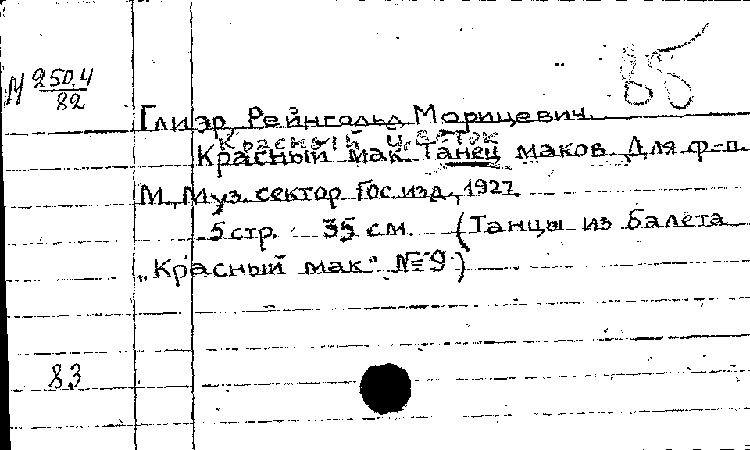 85
М 250.4
82
Глиэр, Рейнгольд Морицевич.
Красный цветок
Красный мак. Танец маков. Для ф-п.
М., Муз. сектор Гос. изд., 1927.
5 стр. 35 см. (Танцы из балета
„Красный мак" № 9)
83